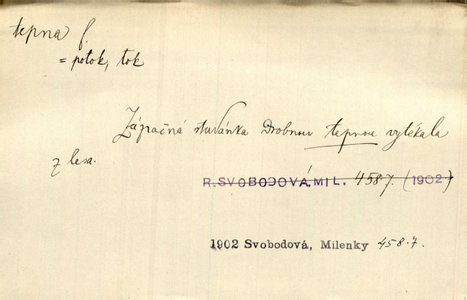 tepna f.
= potok, tok
Zázračná studánka drobnou tepnou vytékala
z lesa.
R. SVOBODOVÁ, MIL. 458.7. (1902)
1902 Svobodová, Milenky 458.7.